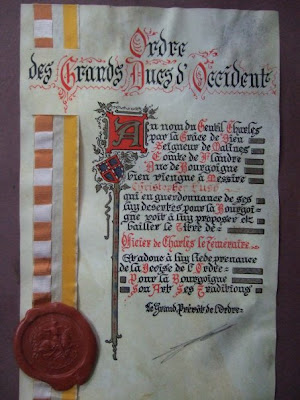 Ordre
des Grands Ducs d'Occident
Au nom du Gentil Charles
par la Grâce de Dieu
Seigneur de Malines
Comte de Flandre
Duc de Bourgogne
bien viengne à Messire
qui en guerdonnance de ses
luy desertes pour la Bourgoi-
gne voit à luy proposer et
bailler le titre de
Officier de Charles le Téméraire
de la Devise de l'Ordre
Pour la Bourgogne
Son Art Ses Traditions
Le Grand Prévôt de l'Ordre